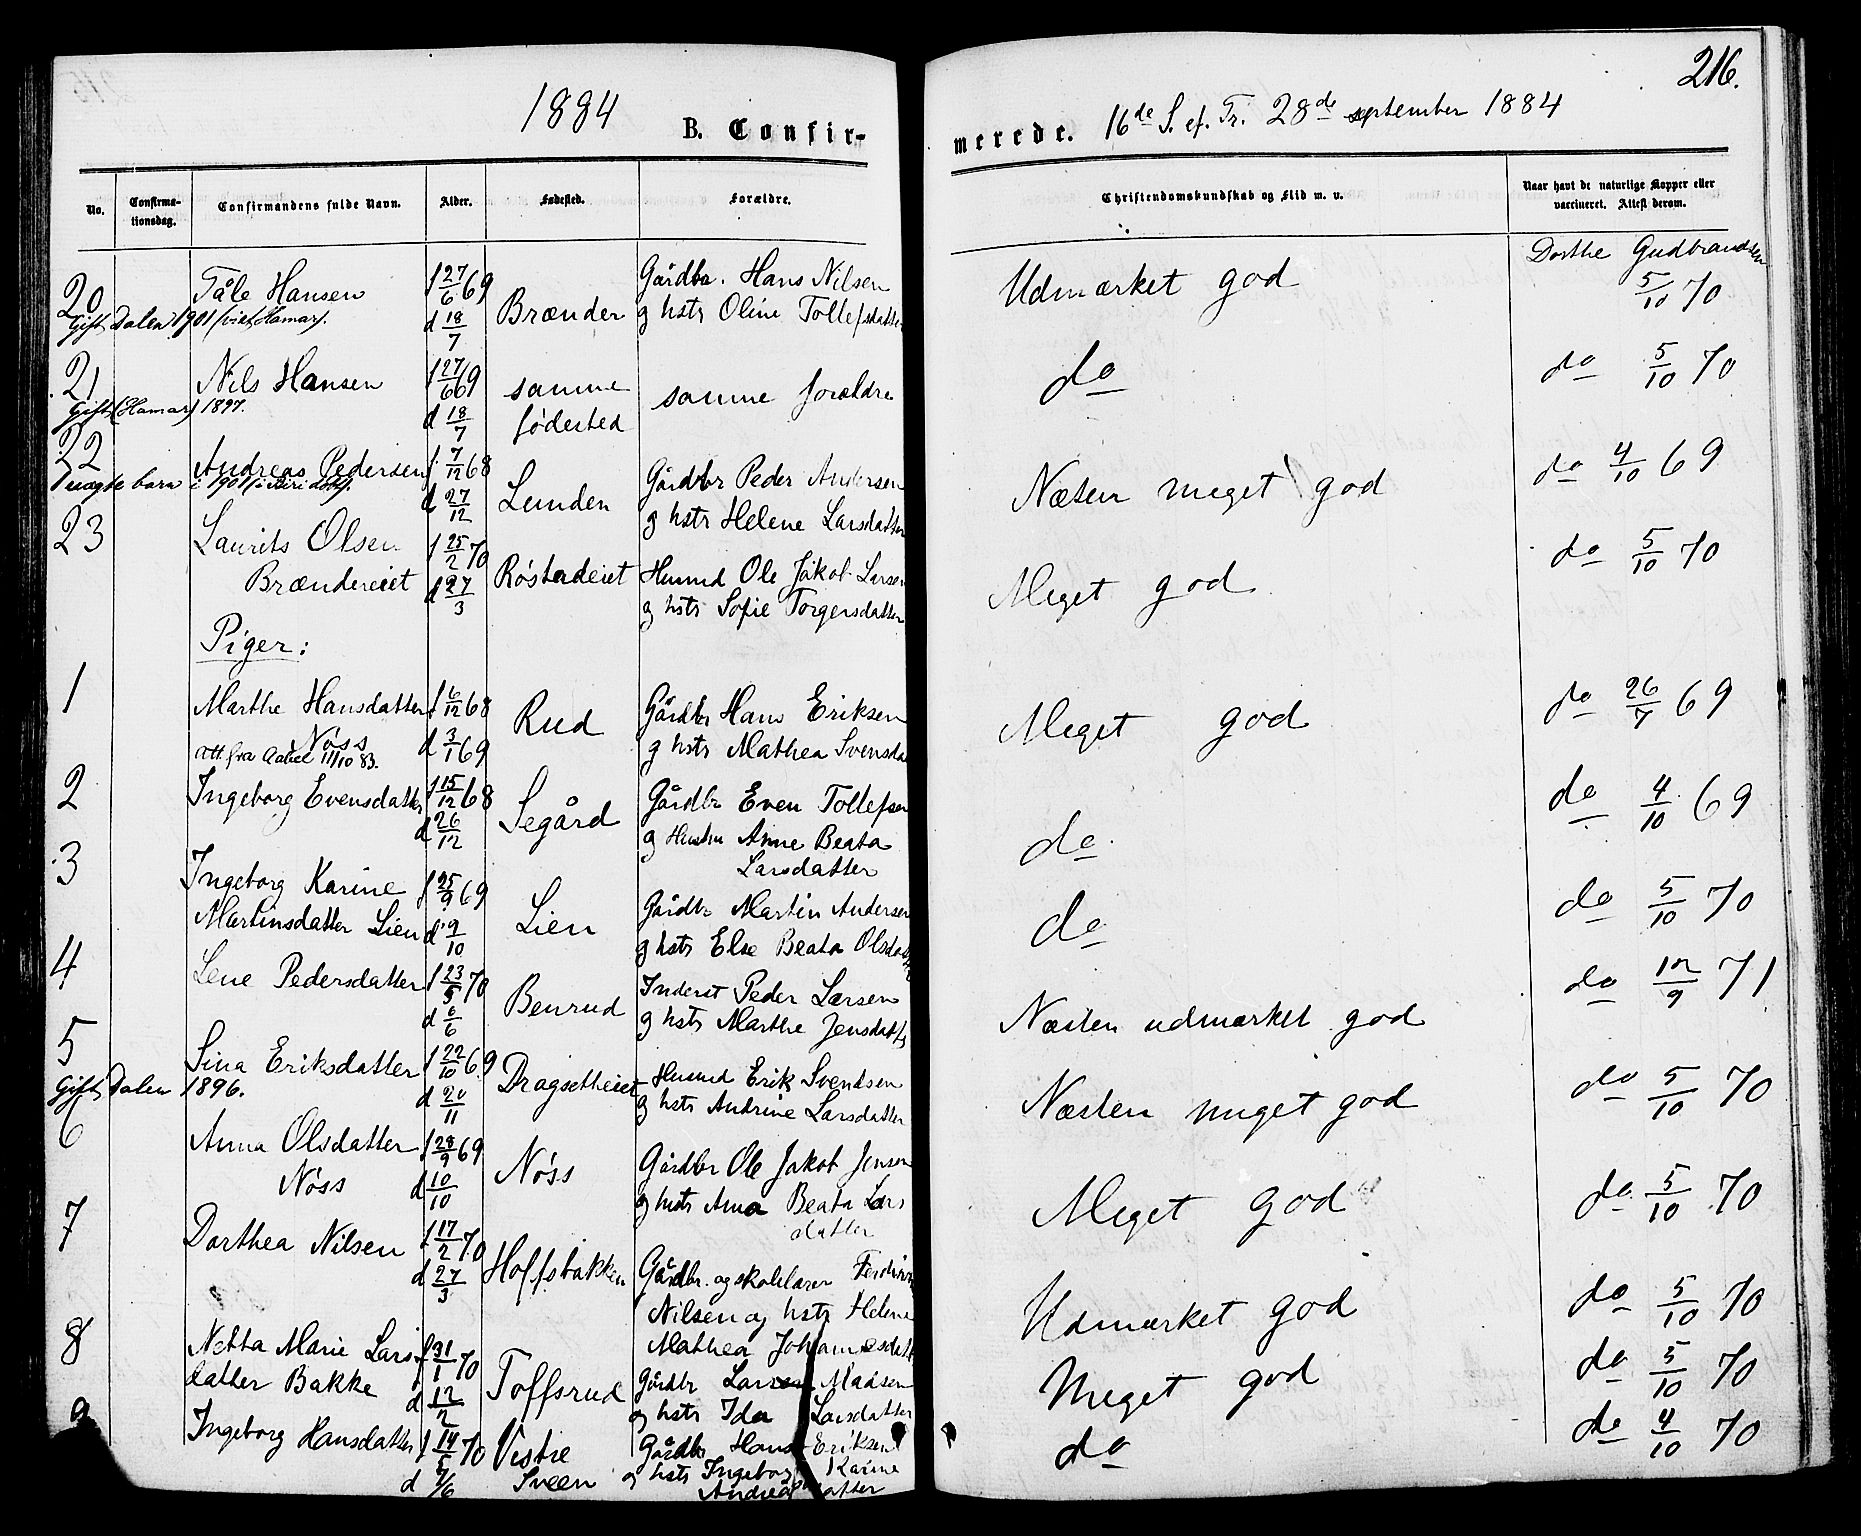 1884
B. Confir-
No.
Confirma-
tionsdag.
Confirmandens fulde Navn.
Alder.
Fødested.
Forældre.
20
Tåle Hansen
f 27/6 69
d 18/7
Brænder
Gårdbr. Hans Nilsen
g hstr Oline Tollefsdatter
Gift Dalen 1901 (viet Hamar).
21
Nils Hansen
f 27/6 69
d 18/7
samme
fødested
samme forældre
Gift (Hamar) 1897.
22
Andreas Pedersen
f 7/12 68
d 27/12
Lunden
Gårdbr Peder Andersen
g hstr Helene Larsdatter
barn i 1901
23
Laurits Olsen
Brændereiet
f 25/2 70
d 27/3
Røstadeiet
Husmd Ole Jakob Larsen
g hstr Sofie Torgersdatter
Piger:
1
Marthe Hansdatter
Nøss
att. fra 11/10 83.
f 6/12 68
d 3/1 69
Rud
Gårdbr Hans Eriksen
g hstr Mathea Svensda
2
Ingeborg Evensdatter
f 15/12 68
d 26/12
Segård
Gårdbr Even Tollefsen
g Hustru Anne Beata
Larsdatter
3
Ingeborg Karine
Martinsdatter Lien
f 25/9 69
d 9/10
Lien
Gårdbr Martin Andersen
g hstr Else Beata Olsdatter
4
Lene Pedersdatter
f 23/5 70
d 6/6
Benrud
Inderst Peder Larsen
g hstr Marthe Jensdatt
5
Sina Eriksdatter
f 22/10 69
d 20/11
Dragsetheiet
Husmd Erik Svendsen
g hstr Andrine Larsdatter
Gift Dalen 1896.
6
Anna Olsdatter
Nøss
f 28/9 69
d 10/10
Nøss
Gårdbr Ole Jakob Jensen
g hstr Anna Beata Lars
datter
7
Dorthea Nilsen
f 17/2 70
d 27/3
Hoffsbakken
Gårdbr. og skolelærer
Nilsen og hstr Helene
Mathea Johannesdatt
8
Netta Marie Lars
datter Bakke
f 31/1 70
d 12/2
Toffsrud
Gårdbr Larsen Madsen
g hstr Ida Larsdatter
9
Ingeborg Hansdatter
f 14/5 70
d 7/6
Vestre
Sveen
Gårdbr Hans Eriksen
g hstr Ingeborg Karine
Andreasdatter
216.
merede. 16de S. ef. Tr. 28de september 1884
Christendomskundskab og Flid m. v.
Naar havt de naturlige Kopper eller
vaccineret. Attest derom.
Udmærket god
Dorthe Gudbrandsen
5/10 70
do
do 5/10 70
Næsten meget god
do 4/10 69
Meget god
do 5/10 70
Meget god
do 26/7 69
do
do 4/10 69
do
do 5/10 70
Næsten udmærket god
do 12/9 71
Næsten meget god
do 5/10 70
Meget god
do 5/10 70
Udmærket god
do 5/10 70
Meget god
do 5/10 70
do
do 4/10 70